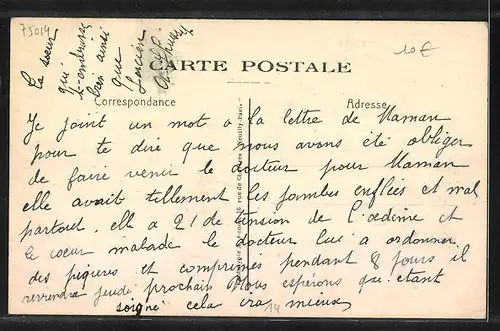 75014
10 €
Ta soeur
qui
t'embrasse
bien ainsi
que
Lucien
CARTE POSTALE
Correspondance
Adresse
Je joint un mot a la lettre de Maman
pour te dire que nous avons été obliger
de faire venir le docteur pour Maman
elle avait tillement les jambes enflées et mal
partout. elle a 21 de tension de l'oedime et
le coeur malade le docteur lui a ordonner
des piqures et comprimés pendant 8 jours il
reviendra jeudi prochain Nous espérons qu'etant
soigné cela ira mieux
14